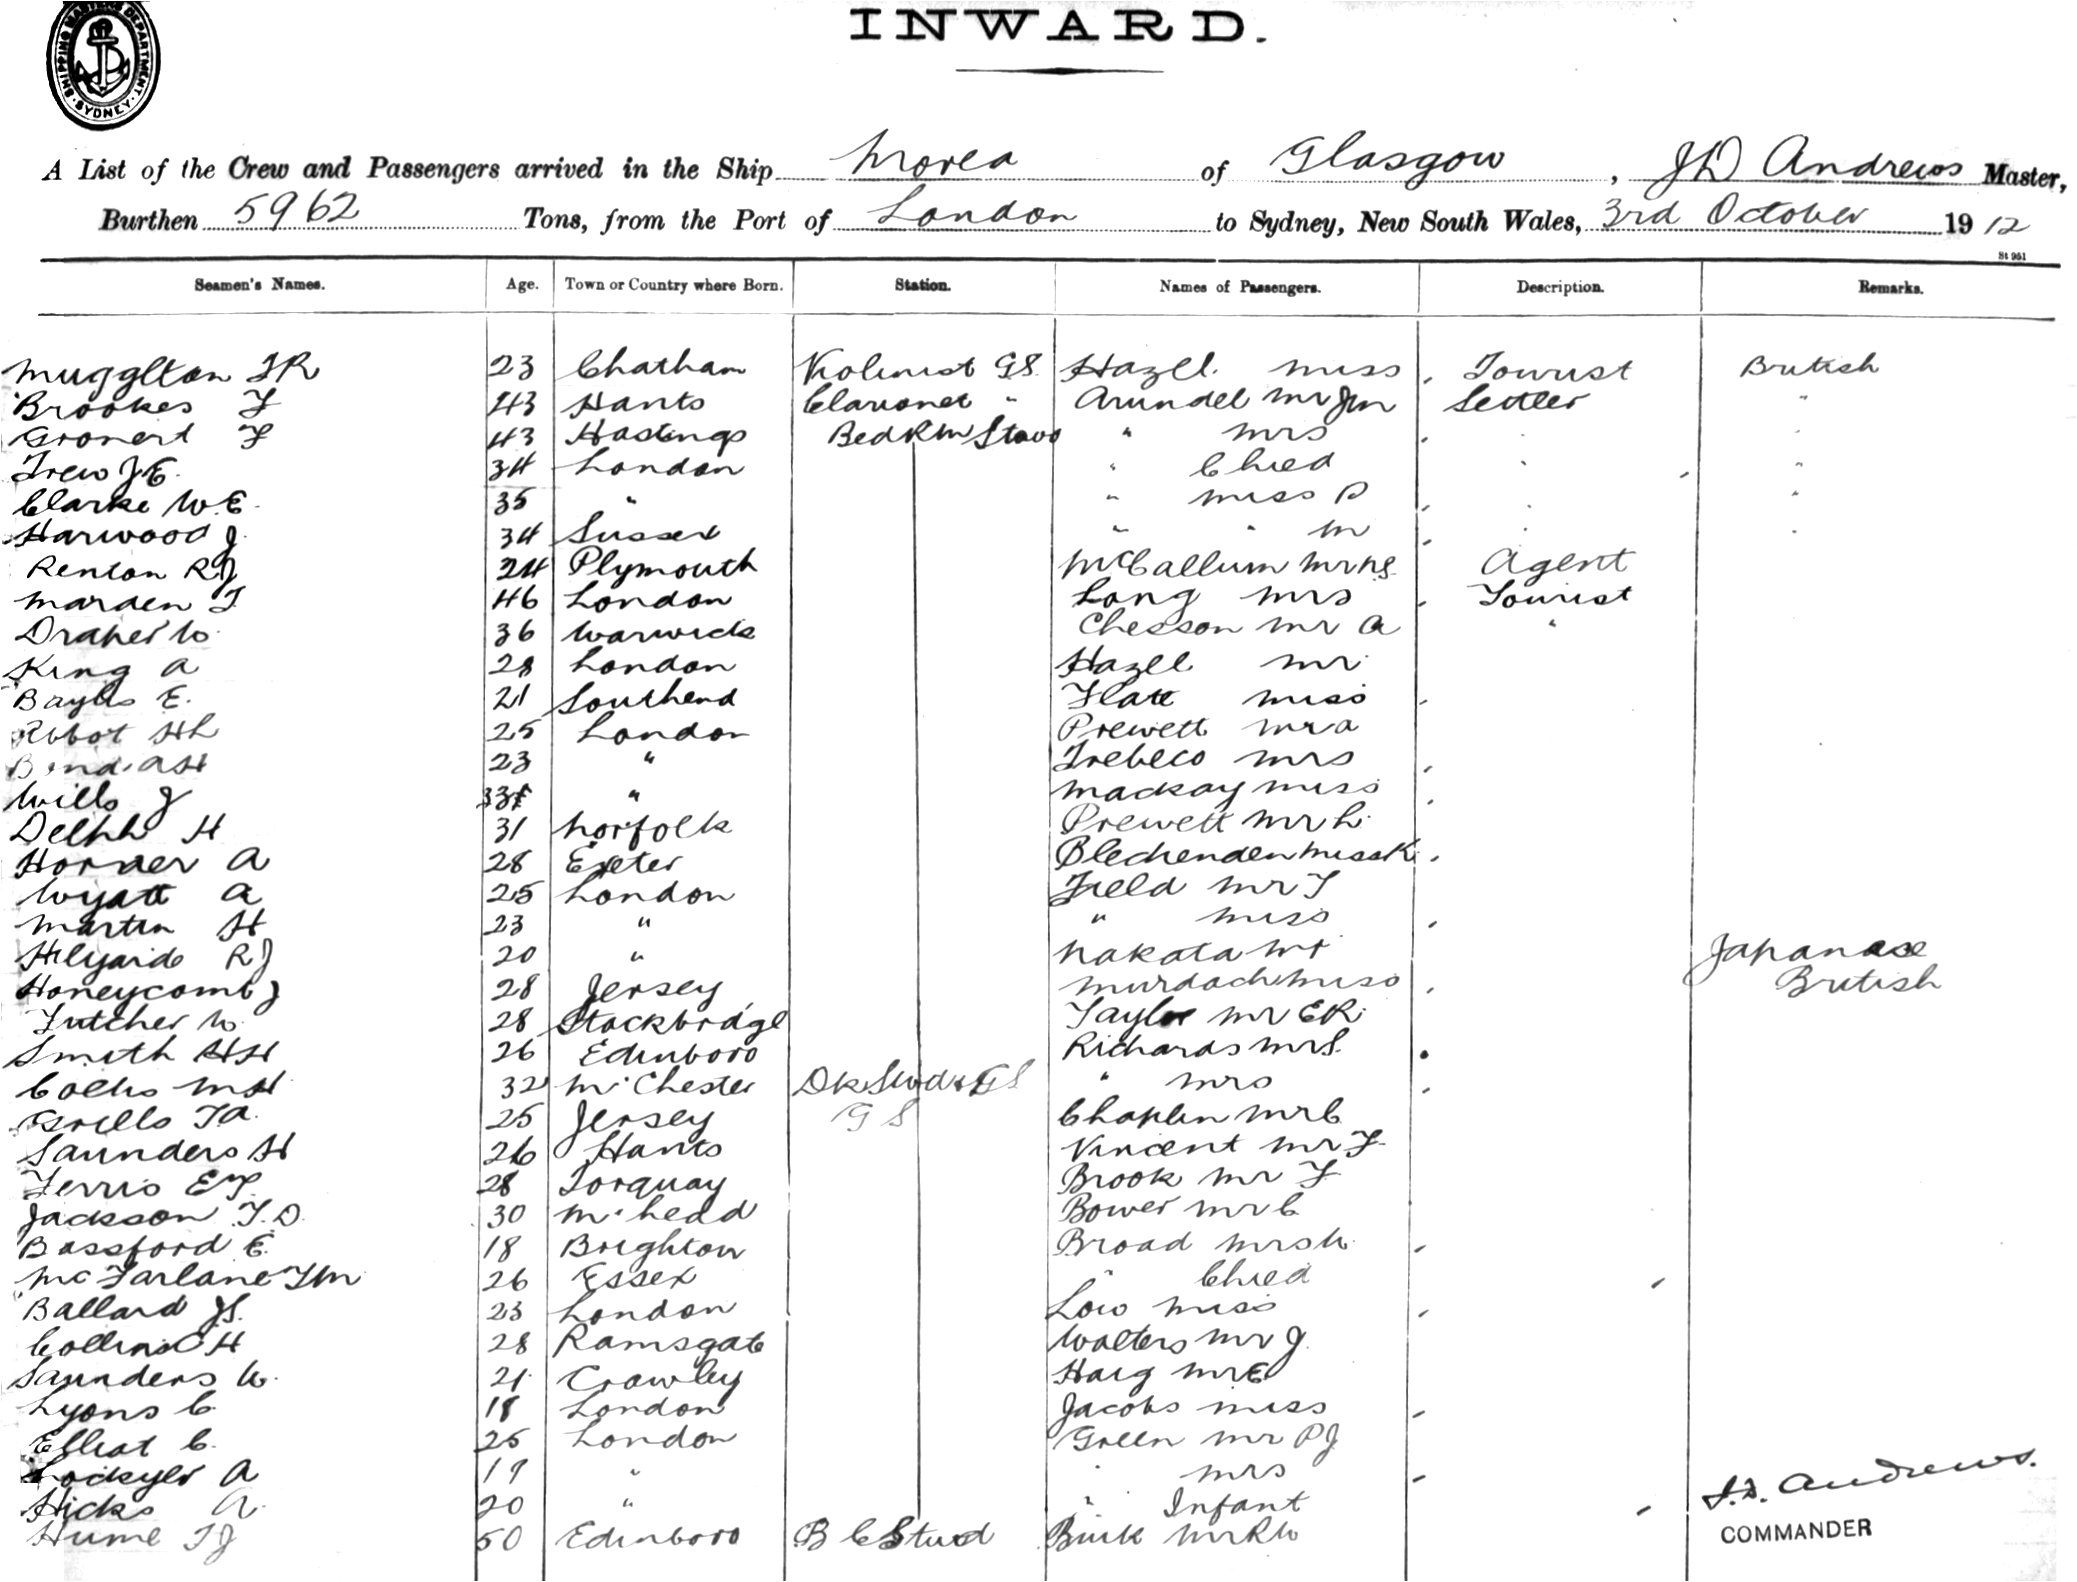 SHIPPING MASTERS DEPARTMENT
SYDNEY
INWARD.
A List of the Crew and Passengers arrived in the Ship Morea of Glasgow, JD Andrews Master,
Burthen 5962 Tons, from the Port of London to Sydney, New South Wales, 3rd October 1912
St 951
Seamen's Names. Age. Town or Country where Born. Station. Names of Passengers. Description. Remarks.
Mugglton 23 Chatham Violinist GS. Hazell Miss Tourist British
Brookes F 43 Hants Clarionet " Arundel Mr Jun Settler "
Gronert F 43 Hastings Bed Rm Stwd " Mrs
Trew J E. 34 London " Child
Clarke W.E. 35 " " Miss
Harwood J. 34 Sussex " " M
Renton RJ 24 Plymouth McCallum Mr Agent
Marden T 46 London Long Mrs Tourist
Draper W. 36 Warwick Chesson Mr A "
King A 28 London Hazell Mr
Bayles E. 21 Southend Flate Miss
Abbot HL 25 London Prewett Mr A
AH 23 " Trebeco Mrs
Wills J " Mackay Miss
Delph H 31 Norfolk Prewett Mr L.
Horner A 28 Exeter Blechenden Miss K
Wyatt A 25 London Field Mr T
Martin H 23 " " Miss
Hilyard RJ 20 " Nakata Mr Japanese
Honeycomb J 28 Jersey Murdoch Miss British
Futcher W. 28 Stockbridge Taylor Mr ER.
Smith HH 26 Edinboro Richards Mr S.
Colles MH 32 M'Chester Dk Stwd & GS " Mrs
Grills TA. 25 Jersey G S Chaplin Mr C
Saunders H 26 Hants Vincent Mr F
Ferris 28 Torquay Brook Mr F
Jackson T.D. 30 M'head Bower Mr C
Bassford E. 18 Brighton Broad Mrs W.
McFarlane TM 26 Essex " Child
Ballard JS. 23 London Low Miss
Collins C H 28 Ramsgate Walters Mr J.
Saunders W. 21 Crawley Haig Mr E
Lyons C 18 London Jacobs Miss
Elliot C. 25 London Green Mr PJ
Lockyer A 19 " " Mrs J.D. Andrews.
Hicks A. 20 " " Infant
Hume TJ 50 Edinboro B C Stwd Burk Mr RW COMMANDER